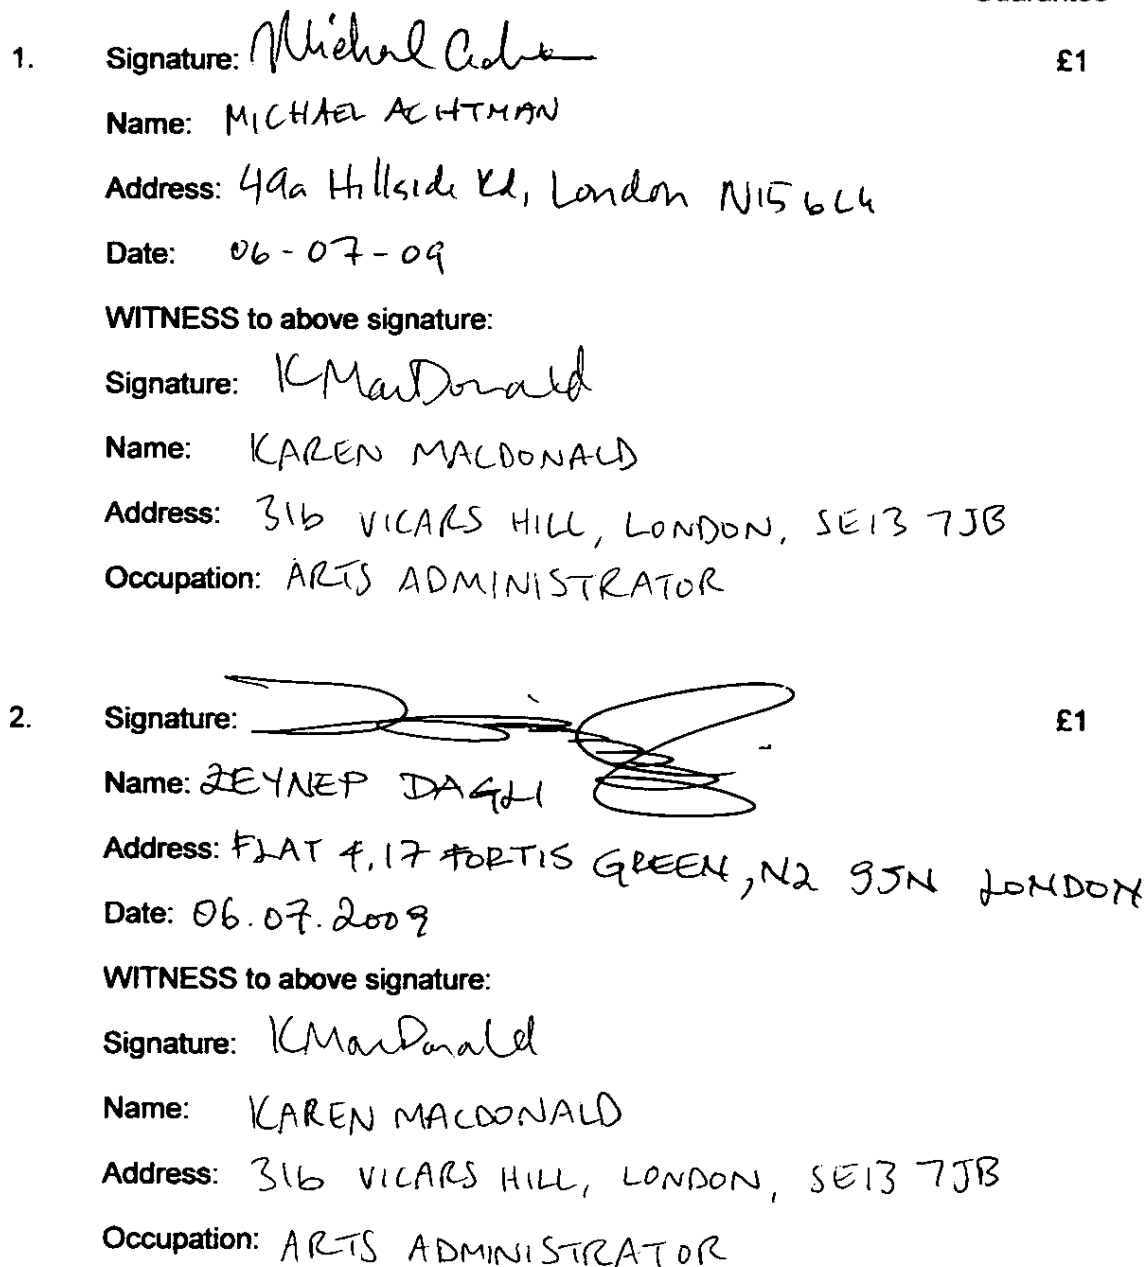 Guarantee
1. Signature: Michael £1
Name: MICHAEL ACHTMAN
Address: 49a Hillside Rd, London N15 6LU
Date: 06-07-09
WITNESS to above signature:
Signature: KMacDonald
Name: KAREN MACDONALD
Address: 31b VICARS HILL, LONDON, SE13 7JB
Occupation: ARTS ADMINISTRATOR
2. Signature: £1
Name: ZEYNEP DAGLI
Address: FLAT 4, 17 FORTIS GREEN, N2 9JN LONDON
Date: 06.07.2009
WITNESS to above signature:
Signature: KMacDonald
Name: KAREN MACDONALD
Address: 31b VICARS HILL, LONDON, SE13 7JB
Occupation: ARTS ADMINISTRATOR